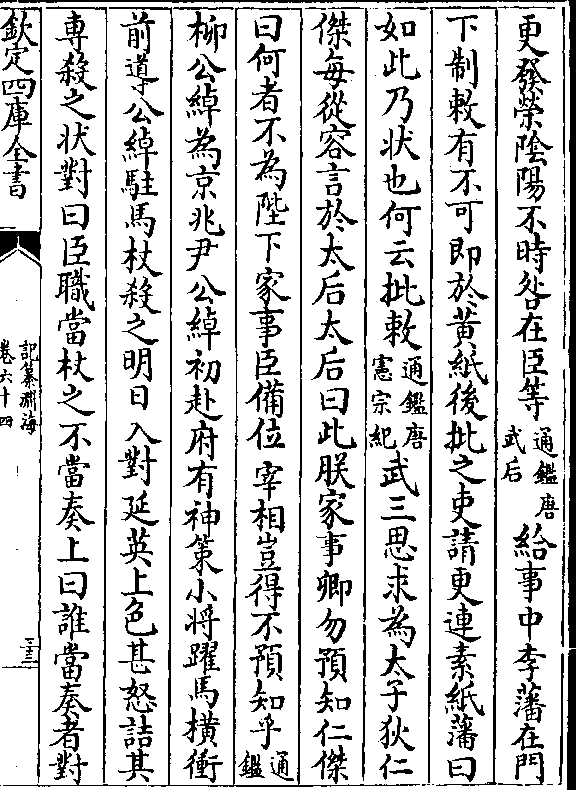 更發滎陰陽不時咎在臣等通鑑唐武后給事中李藩在門
下制敕有不可即於黄紙後批之吏請更連素紙藩曰
如此乃状也何云批敕通鑑唐憲宗紀武三思求為太子狄仁
傑每從容言於太后太后曰此朕家事卿勿預知仁傑
曰何者不為陛下家事臣備位宰相豈得不預知乎通鑑
柳公綽為京兆尹公綽初赴府有神策小將躍馬横衝
前導公綽駐馬杖殺之明日入對延英上色甚怒詰其
專殺之状對曰臣職當杖之不當奏上曰誰當奏者對
欽定四庫全書
記纂淵海
卷六十四
三十三